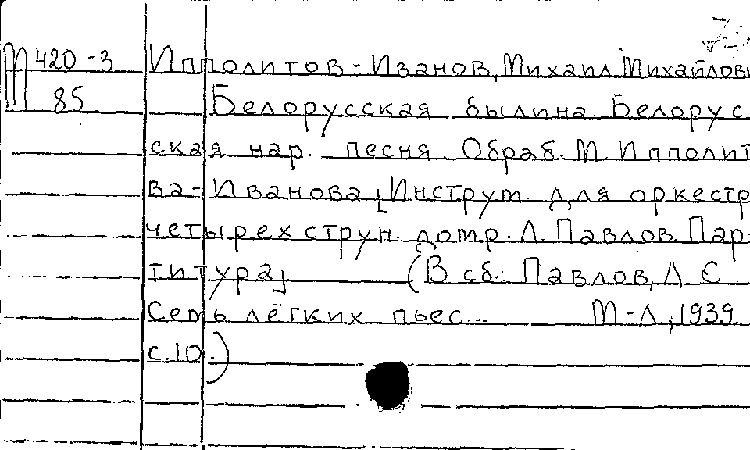 М 420-3 Ипполитов-Иванов, Михаил Михайлови
85 Белорусская былина. Белорус
ская нар. песня. Обраб. М. Ипполит
ва-Иванова [Инструм. для оркестр
четырехструн. домр. Л. Павлов. Пар-
титура] (В сб. Павлов, Л. Е.
Семь лёгких пьес... М-Л, 1939
с. 10.)